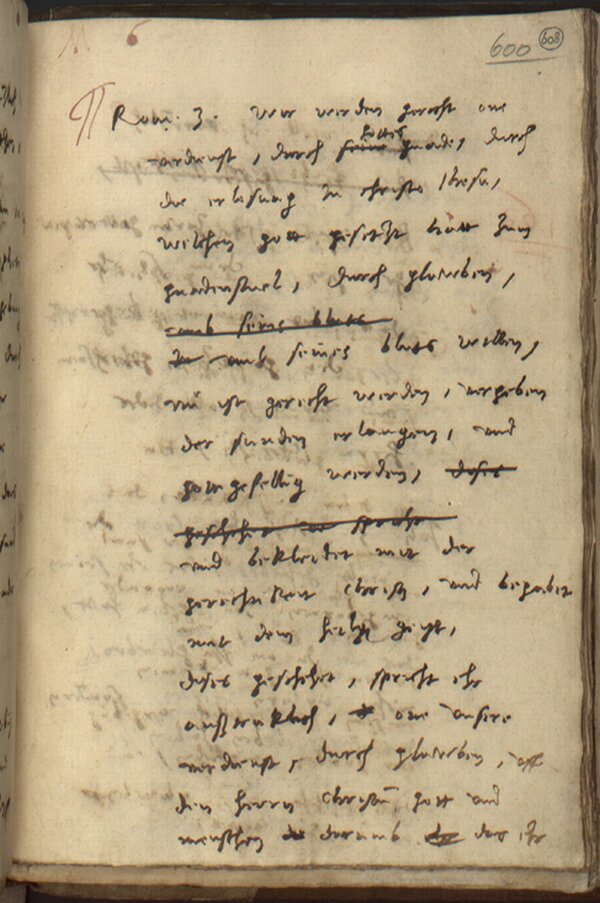 6 600 608
Rom. 3. Wir werden gerecht one
verdienst, durch seine gottes gnade, durch
die erlösung in christo Jhesu,
welchen gott gesetzt hatt zum
gnadenstuel, durch glawben,
umb seins bluts
umb seines bluts willen,
nu ist gerecht werden, vergebung
der sunden erlangen, und
gott gefellig werden, dises
geschehet spricht
und bekleidet mit der
gerechtikeit Christi, und begabet
mit dem heilgen geist,
dises geschehet, spricht ehr
außtruklich, one unsere
verdienst, durch glawben, aff
den herrn Christum gott und
menschen darumb das ehr